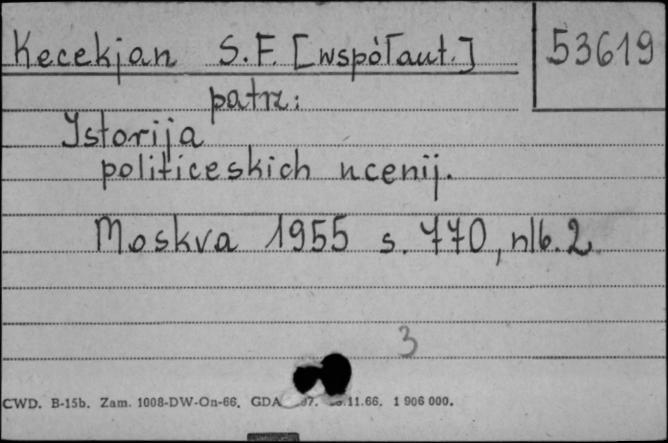 Kecekjan S.F. [współaut.]
53619
patrz:
Istorija
politiceskich ucenij.
Moskva 1955 s. 770, nlb. 2
3
CWD. B-15b. Zam. 1008-DW-On-66. GDA 11.66. 1 906 000.